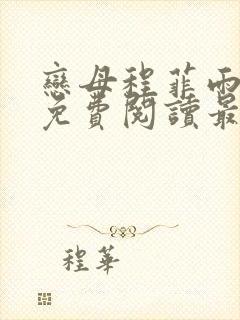 戀母程菲雨
免費閱讀最
程華